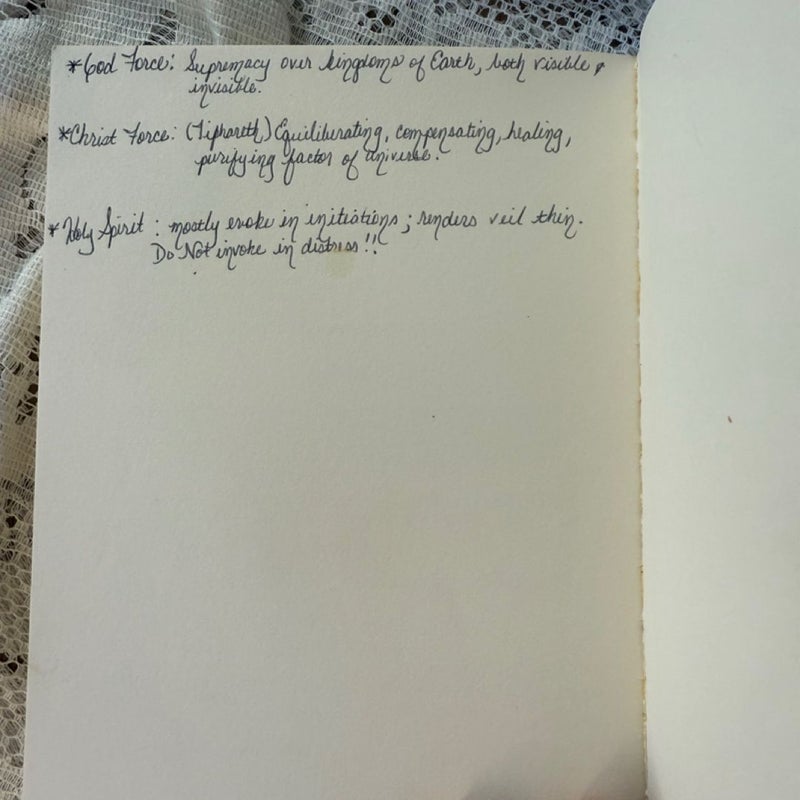 *God Force: Supremacy over kingdoms of Earth, both visible &
invisible.
*Christ Force: (Tiphareth) Equiliberating, compensating, healing,
purifying factor of universe.
*Holy Spirit: mostly evoke in initiations; renders veil thin.
Do Not invoke in distress!!